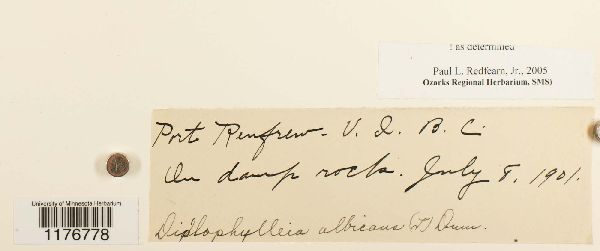 ! as determined
Paul L. Redfearn, Jr., 2005
Ozarks Regional Herbarium, SMS)
Port Renfrew - V. I. B. C.
On damp rocks. July 8, 1901.
Diplophylleia albicans (L) Dum.
University of Minnesota Herbarium
1176778